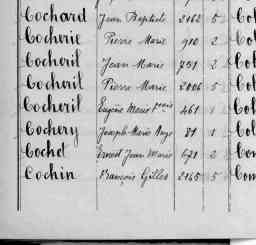 Cochard Jean Baptiste 2162 5 Col
Cocherie Pierre Marie 910 2 Col
Cocheril Jean Marie 751 2 Col
Cocheril Pierre Marie 2006 5 Col
Cocheril Eugène Marie François 461 1 Col
Cochery Joseph Marie Ange 81 1 Col
Cochet Ernest Jean Marie 671 2 Com
Cochin François Gilles 2165 5 Com